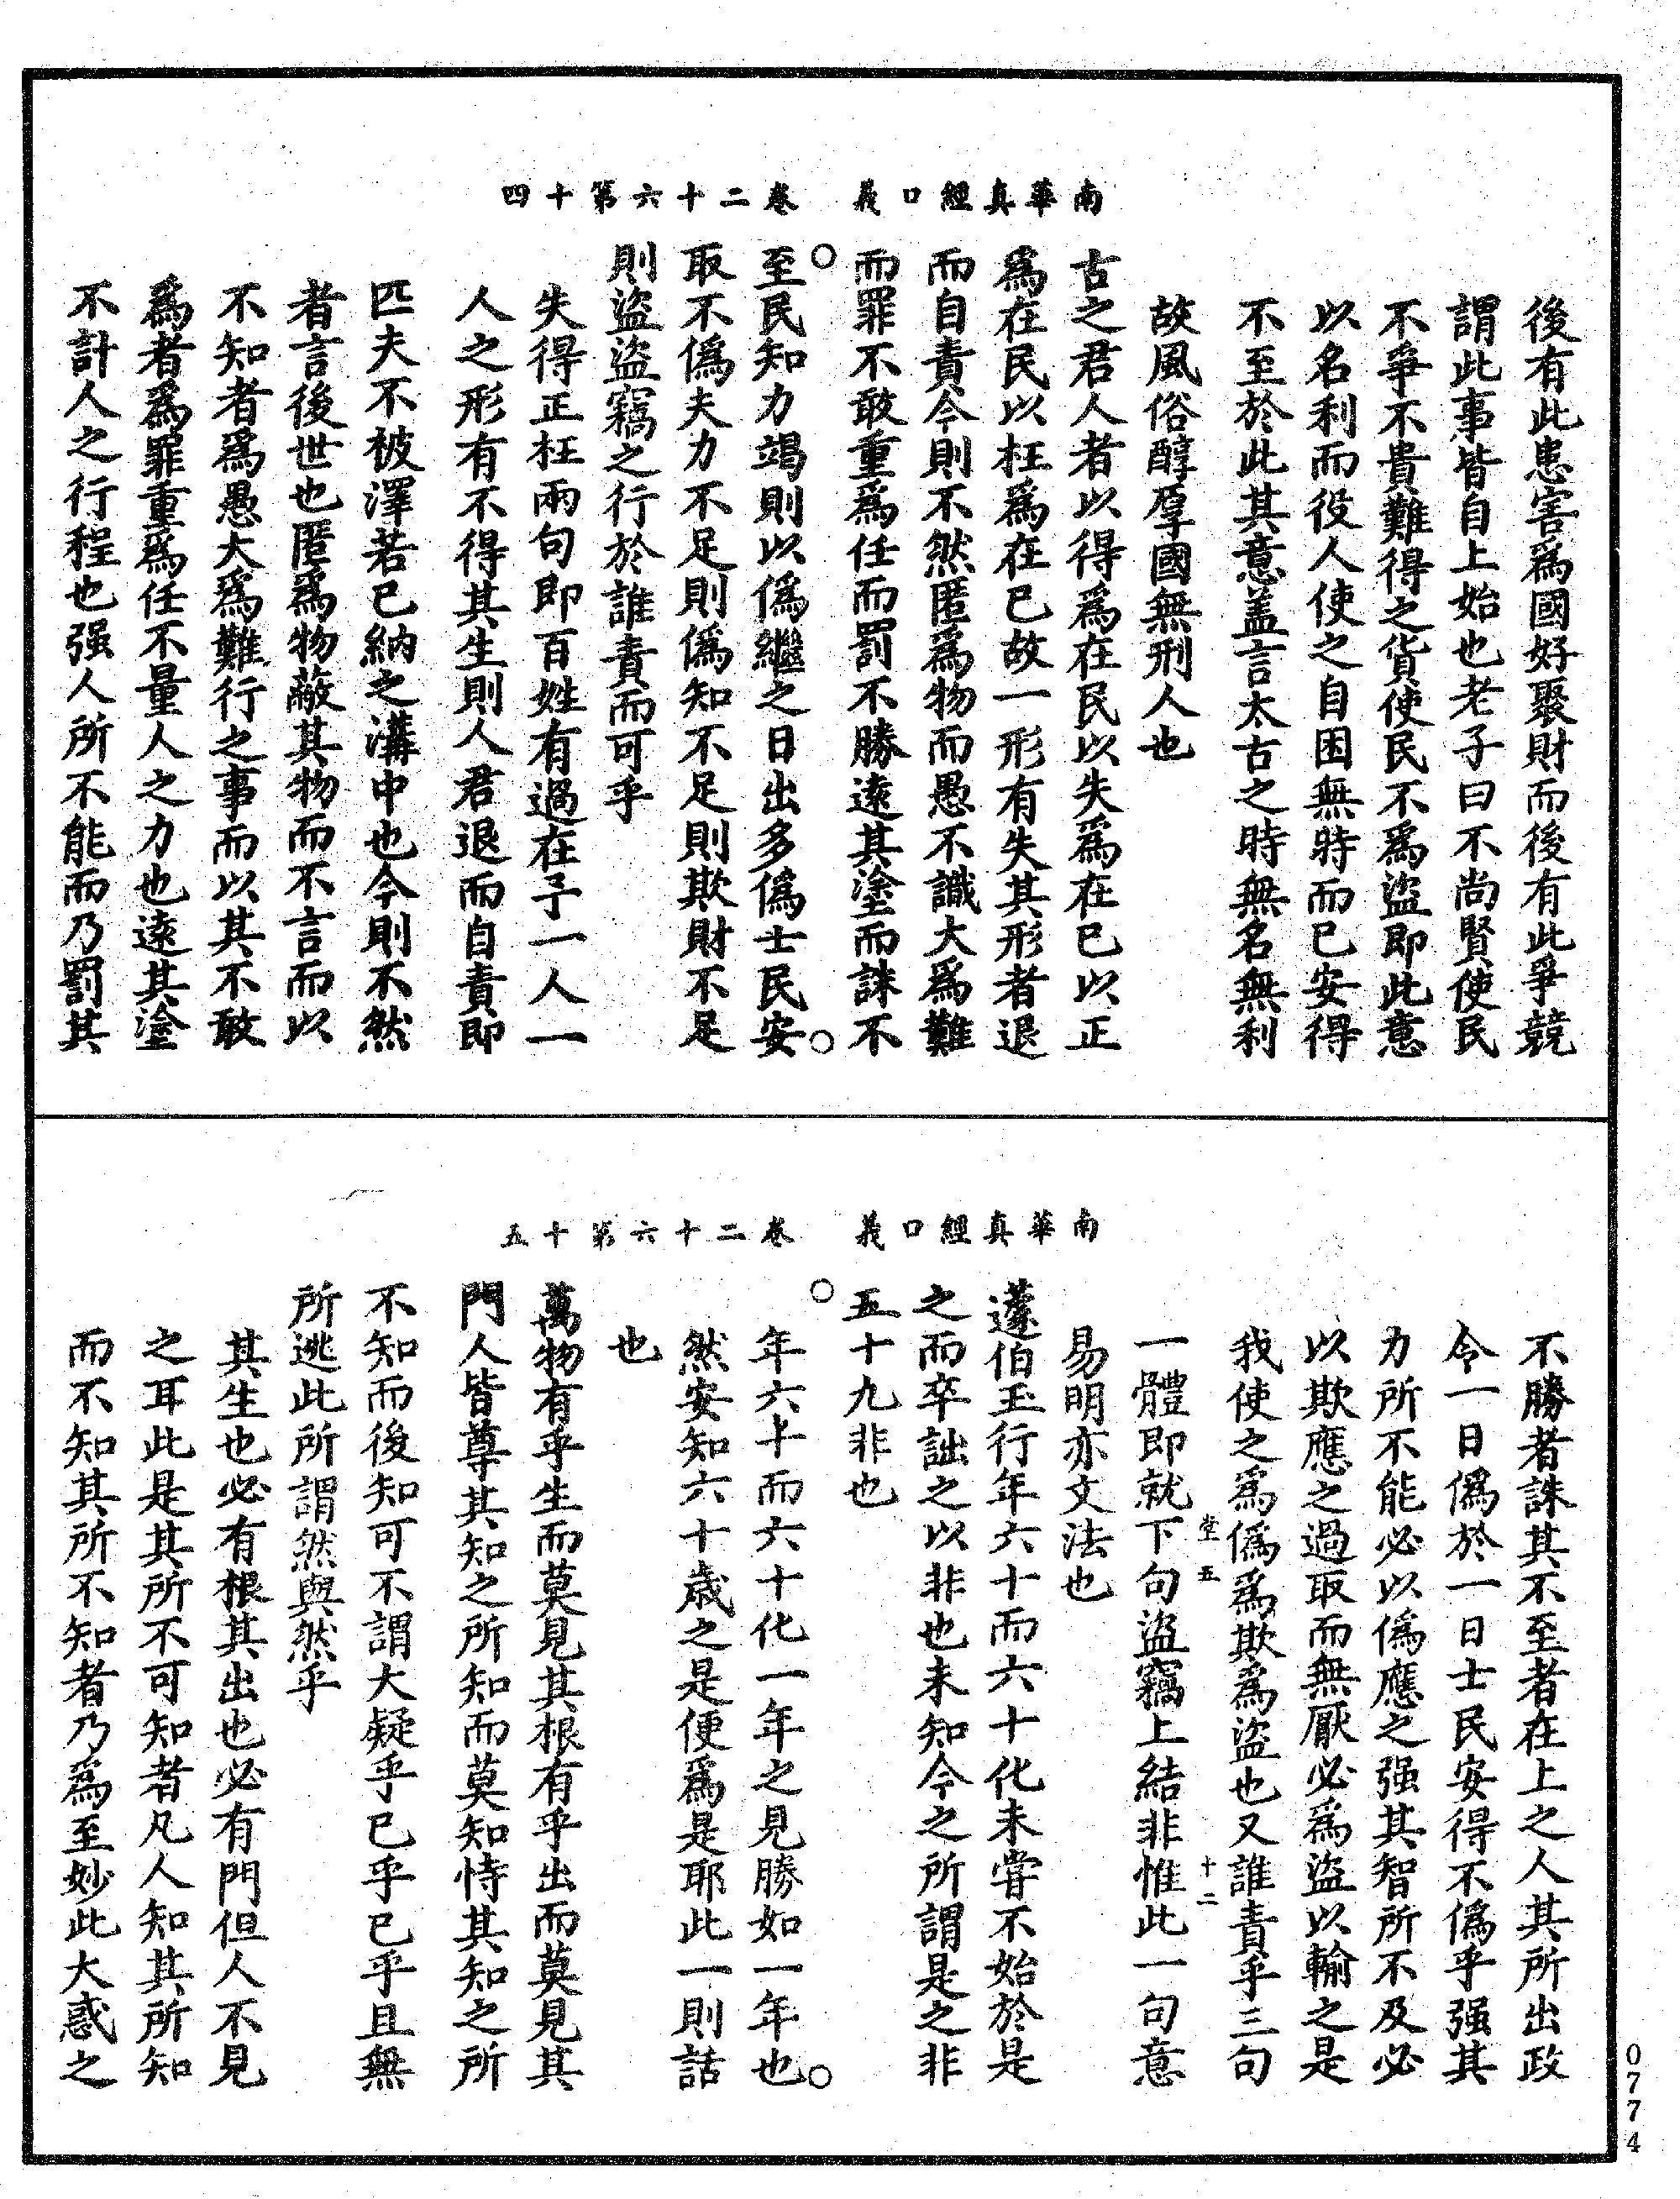 南華真經口義　卷二十六第十四
後有此患害爲國好聚財而後有此爭競
謂此事皆自上始也老子曰不尚賢使民
不爭不貴難得之貨使民不爲盜即此意
以名利而役人使之自困無時而已安得
不至於此其意盖言太古之時無名無利
故風俗醇厚國無刑人也
古之君人者以得爲在民以失爲在已以正
爲在民以枉爲在已故一形有失其形者退
而自責今則不然匿爲物而愚不識大爲難
而罪不敢重爲任而罰不勝遠其塗而誅不
至民知力竭則以僞繼之日出多僞士民安
取不僞夫力不足則僞知不足則欺財不足
則盜盜竊之行於誰責而可乎
失得正枉兩句即百姓有過在予一人一
人之形有不得其生則人君退而自責即
匹夫不被澤若已納之溝中也今則不然
者言後世也匿爲物蔽其物而不言而以
不知者爲愚大爲難行之事而以其不敢
爲者爲罪重爲任不量人之力也遠其塗
不計人之行程也强人所不能而乃罰其
南華真經口義　卷二十六第十五
不勝者誅其不至者在上之人其所出政
令一日僞於一日士民安得不僞乎强其
力所不能必以僞應之强其智所不及必
以欺應之過取而無厭必爲盜以輸之是
我使之爲僞爲欺爲盜也又誰責乎三句
堂五　十二
一體即就下句盜竊上結非惟此一句意
易明亦文法也
蘧伯玉行年六十而六十化未甞不始於是
之而卒詘之以非也未知今之所謂是之非
五十九非也
年六十而六十化一年之見勝如一年也
然安知六十歲之是便爲是耶此一則話
也
萬物有乎生而莫見其根有乎出而莫見其
門人皆尊其知之所知而莫知恃其知之所
不知而後知可不謂大疑乎已乎已乎且無
所逃此所謂然與然乎
其生也必有根其出也必有門但人不見
之耳此是其所不可知者凡人知其所知
而不知其所不知者乃爲至妙此大惑之
0774